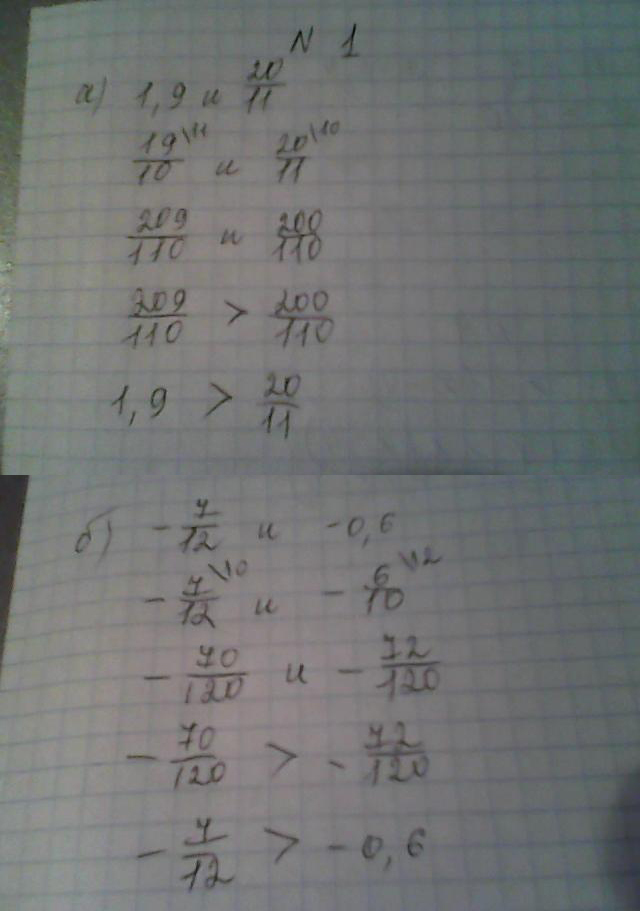 N 1
а) 1,9 и 20/11
19/10 \11 и 20/11 \10
209/110 и 200/110
209/110 > 200/110
1,9 > 20/11
б) -7/12 и -0,6
-7/12 \10 и -6/10 \12
-70/120 и -72/120
-70/120 > -72/120
-7/12 > -0,6